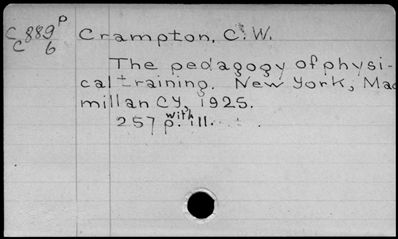 C889p Crampton, C. W.
C 6
The pedagogy of physi-
cal training. New York, Mac
millan Cy, 1925.
257 p. with ill.